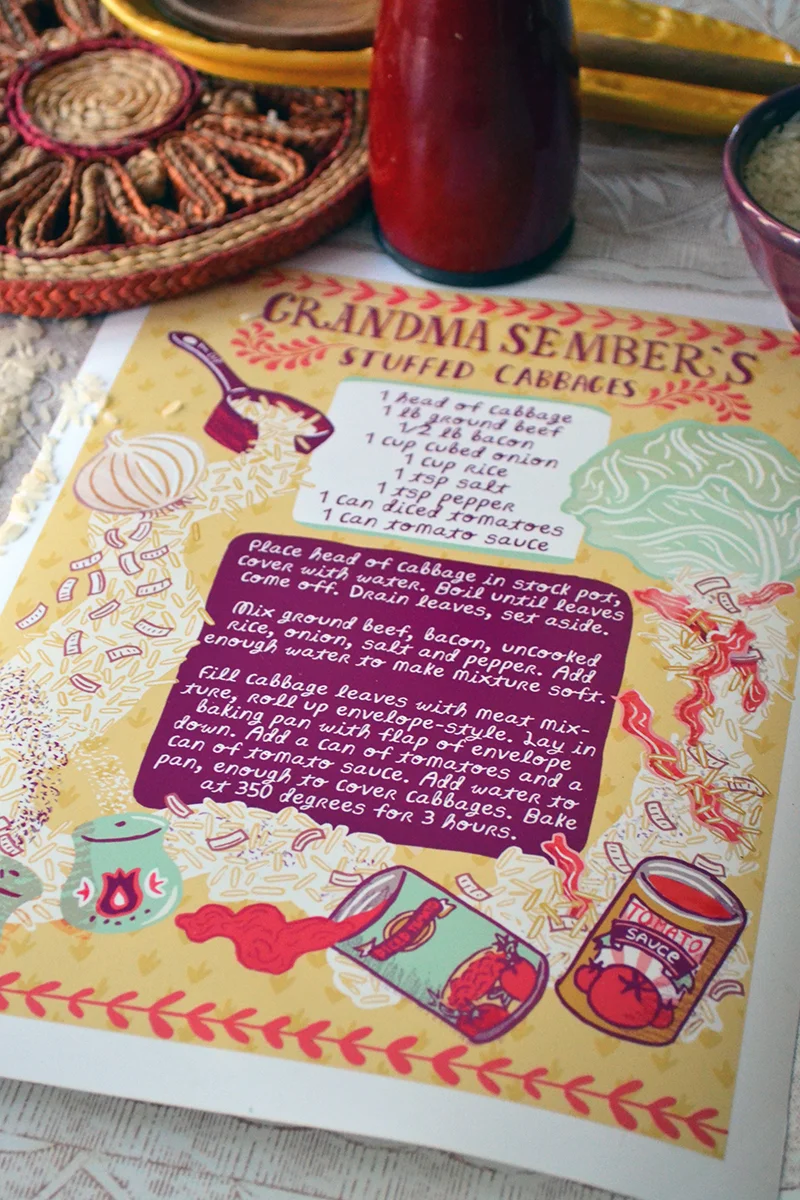 GRANDMA SEMBER'S
STUFFED CABBAGES
1 head of cabbage
1 lb ground beef
1/2 lb bacon
1 cup cubed onion
1 cup rice
1 tsp salt
1 tsp pepper
1 can diced tomatoes
1 can tomato sauce
Place head of cabbage in stock pot,
cover with water. Boil until leaves
come off. Drain leaves, set aside.
Mix ground beef, bacon, uncooked
rice, onion, salt and pepper. Add
enough water to make mixture soft.
Fill cabbage leaves with meat mix-
ture, roll up envelope-style. Lay in
baking pan with flap of envelope
down. Add a can of tomatoes and a
can of tomato sauce. Add water to
pan, enough to cover cabbages. Bake
at 350 degrees for 3 hours.
TOMATO
SAUCE